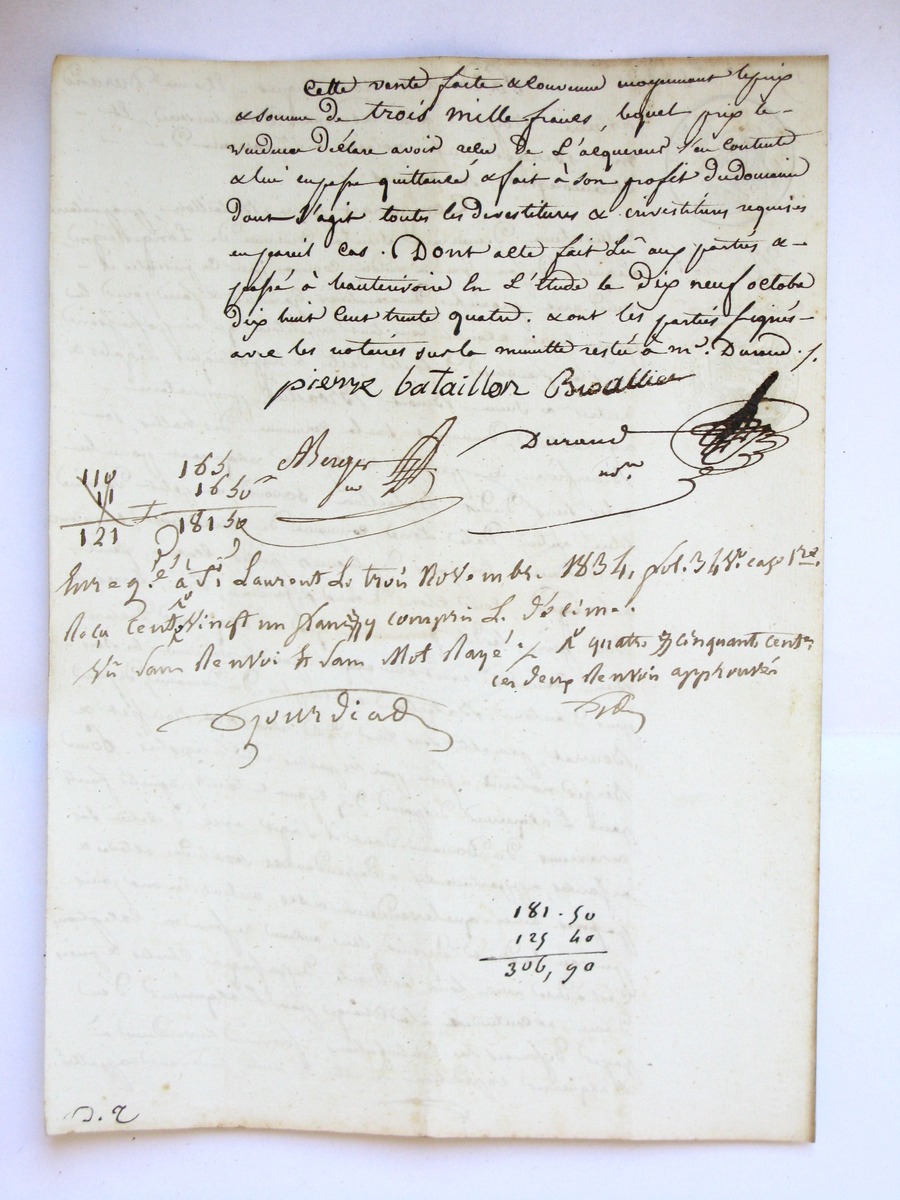 Cette vente faite & convenue moyennant le prix
& somme de trois mille francs, lequel prix le-
vendeur déclare avoir reçu de l'acquereur s'en contente
& lui en passe quittance & fait à son profit du domaine
dont s'agit toutes les devestitures & investitures requises
en pareil cas. Dont acte fait Lû aux parties & -
passé à hauterivoire En l'étude le Dix neuf octobe
dix huit cent trente quatre. & ont les parties signés -
avec les notaires sur la minutte restée à mᵉ. Durand. /.
pierre bataillon
Berger
Durand
110
11
121
165
16 50
181 50
Enreg.é à St Laurent Le trois Novembre 1834, fol. 34 Vo. case 1re.
Reçu Cent Vingt un francs y compris L. décime.
Vû Sans Renvoi et Sans Mot Rayé ./. quatre cinquante centes
ces deux Renvois approuvés
181 . 50
125 40
306, 90
D. 2